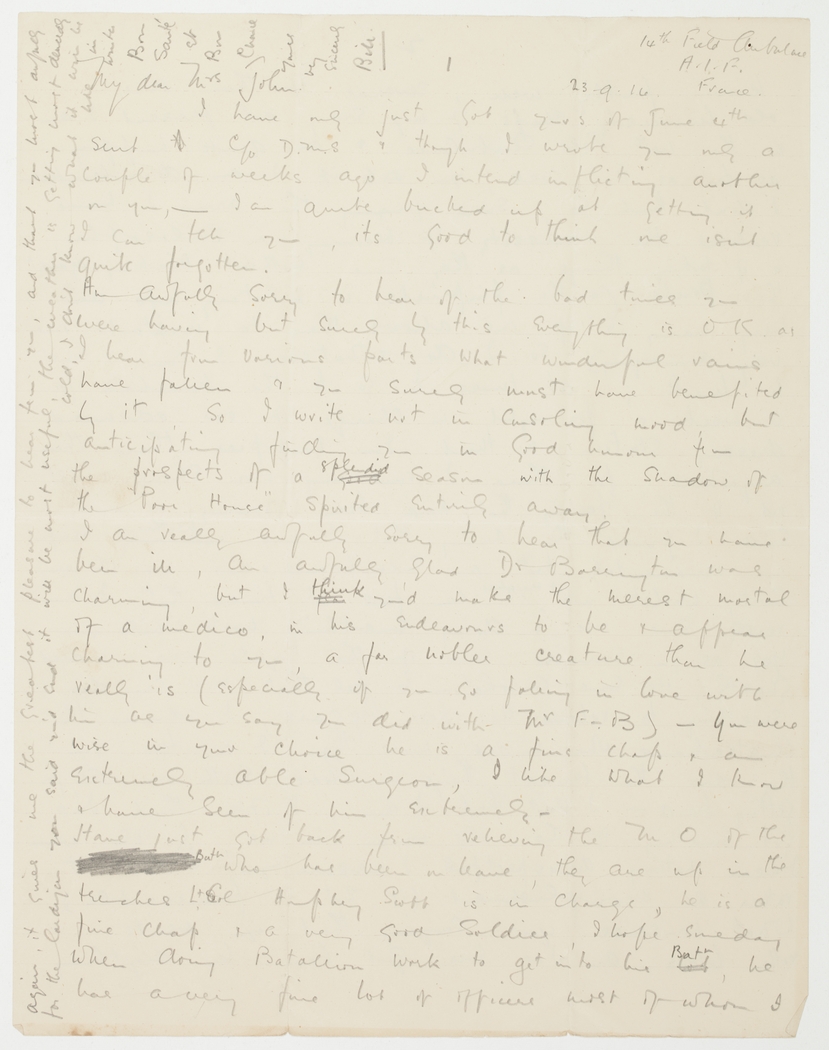 1
14th Field Ambulance
A.I.F.
23-9-16 France.
My dear Mrs John.
have only just got yours of June 4th
sent C/o D.M.S & though I wrote you only a
couple of weeks ago I intend inflicting another
on you, — I am quite bucked up at getting it
I can tell you, its good to think one isn't
quite forgotten.
Am awfully sorry to hear of the bad times you
were having but surely by this everything is OK as
I hear from various parts what wonderful rains
have fallen & you surely must have benefited
by it, So I write not in consoling mood, but
anticipating finding you in good humour from
the prospects of a splendid season with the shadow of
the "Poor House" spirited entirely away.
I am really awfully sorry to hear that you have
been ill, am awfully glad Dr Barrington was
charming, but I think you'd make the merest mortal
of a medico, in his endeavours to be & appear
charming to you, a far nobler creature than he
really is (especially if you go falling in love with
him as you say you did with Mr F-B) — You were
wise in your choice he is a fine chap & an
extremely able surgeon, I like what I know
& have seen of him extremely —
Have just got back from relieving the M O of the
Batn who has been on leave, they are up in the
trenches Lt Col Humphrey Scott is in charge, he is a
fine chap & a very good soldier, I hope someday
when doing Batallion work to get into his Batn, he
has a very fine lot of officers most of whom I
again, it gives me the greatest pleasure to hear from you, and thank you most awfully
for the cardigan you said you'd send it will be most useful, the weather is getting most decidedly
cold, & I don't know what it will be
like in
write
Bon
Santé
et
Bon
Chance
yours
very
sincerely
Bill